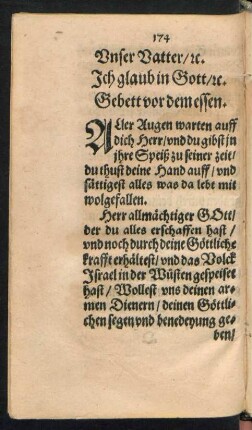 174
Vnser Vatter/ꝛc.
Ich glaub in Gott/ꝛc.
Gebett vor dem essen.
ALler Augen warten auff
dich Herr/vnd du gibst jn
jhre Speiß zu seiner zeit/
du thust deine Hand auff/ vnd
sättigest alles was da lebt mit
wolgefallen.
Herr allmächtiger GOtt/
der du alles erschaffen hast/
vnd noch durch deine Göttliche
krafft erhältest/ vnd das Volck
Israel in der Wüsten gespeiset
hast/ Wollest vns deinen ar-
men Dienern/ deinen Göttli-
chen segen vnd benedeyung ge-
ben/